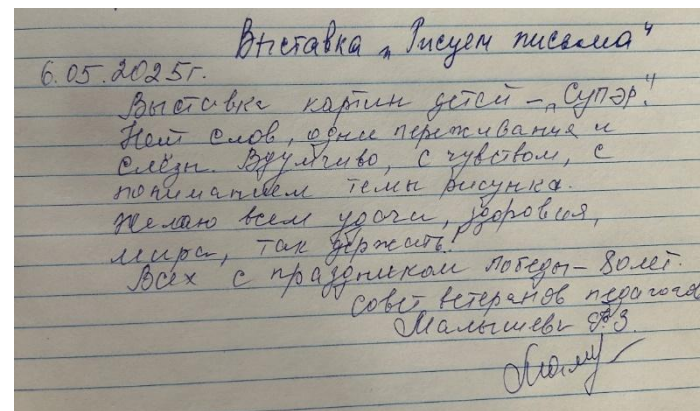 Выставка „Рисуем письма“
6.05.2025г.
Выставка картин детей – „Супэр“!
Нет слов, одни переживания и
слёзы. Вдумчиво, с чувством, с
пониманием темы рисунка.
Желаю всем удачи, здоровия,
мира, так держать!
Всех с праздником победы – 80 лет.
Совет ветеранов педагогов
Малышева З.